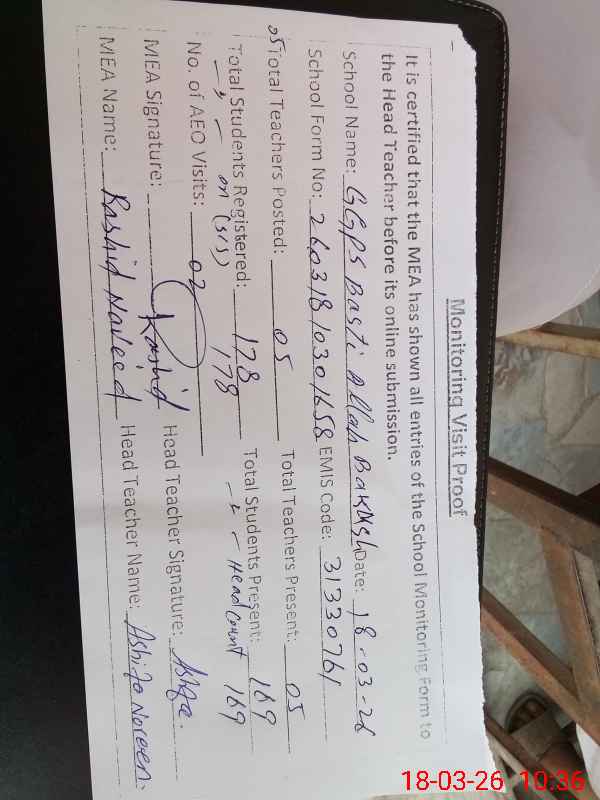 Monitoring Visit Proof
It is certified that the MEA has shown all entries of the School Monitoring Form to
the Head Teacher before its online submission.
School Name: GGPS Basti Allah Bakhsh Date: 18-03-26
School Form No: 26031810301658 EMIS Code: 31330761
05 Total Teachers Posted: 05 Total Teachers Present: 05
Total Students Registered: 178 Total Students Present: 169
on (SIS) 178 Head Count 169
No. of AEO Visits: 02
MEA Signature: Rashid Head Teacher Signature:
MEA Name: Rashid Naveed Head Teacher Name: Noreen.
18-03-26 10:36